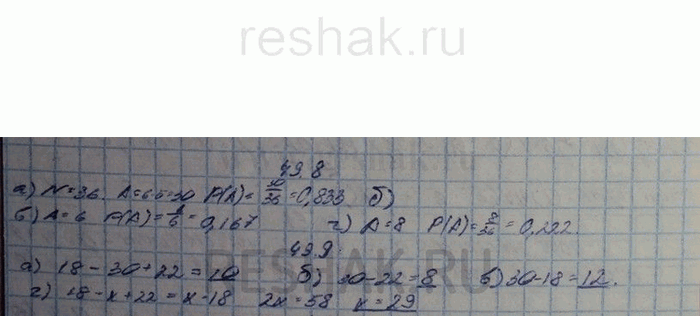 reshak.ru
49.8
а) N=36. A=6·5=30 P(A)=30/36=0,833 б)
в) A=6 P(A)=1/6=0,167 г) A=8 P(A)=8/36=0,222.
49.9
RESHAK.RU
а) 18-30+22=10 б) 30-22=8 в) 30-18=12.
г) 18-x+22=x-18 2x=58 x=29